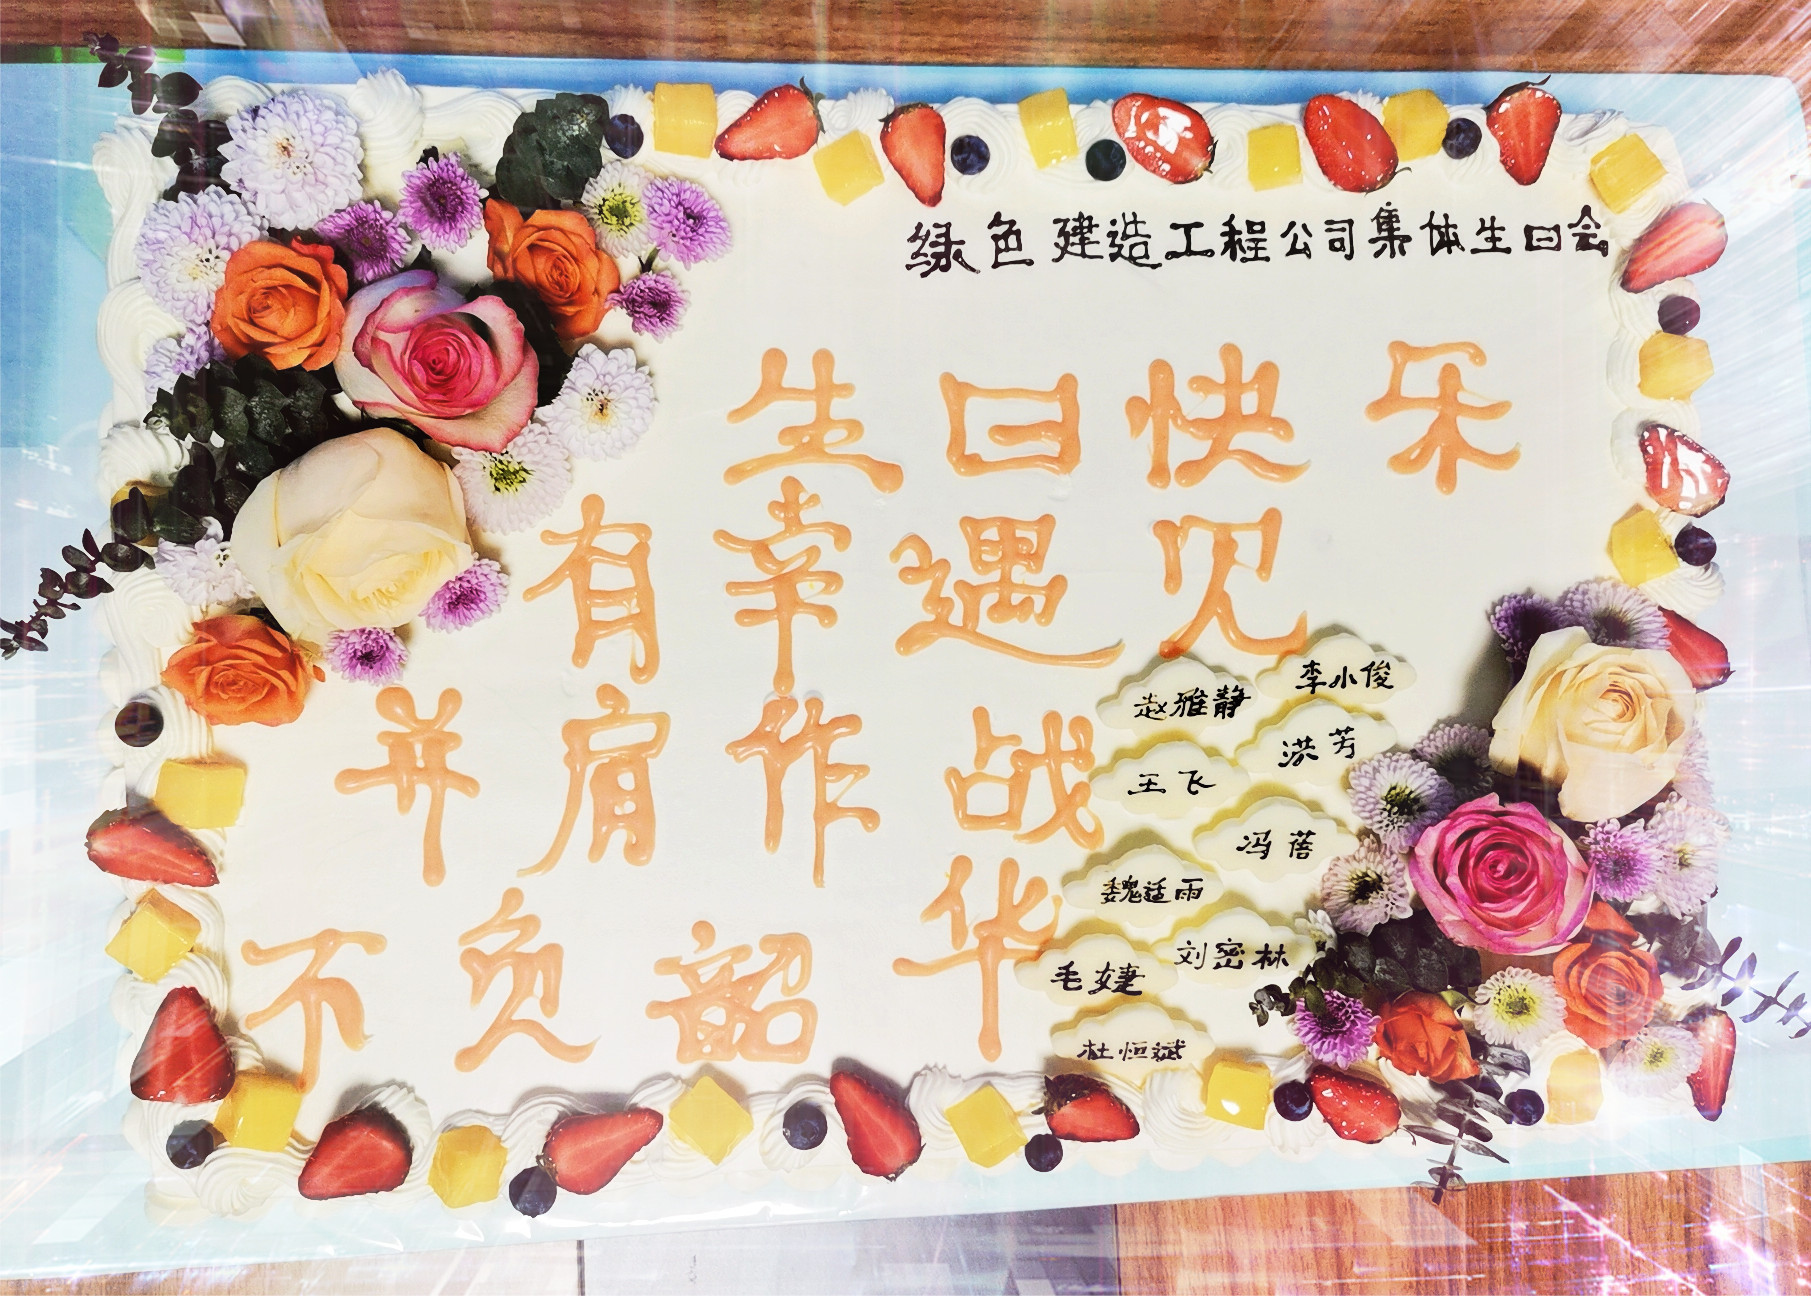 绿色建造工程公司集体生日会
生日快乐
有幸遇见
并肩作战
不负韶华
赵雅静
李小俊
洪芳
王飞
冯蓓
魏适雨
刘密林
毛婕
杜恒斌